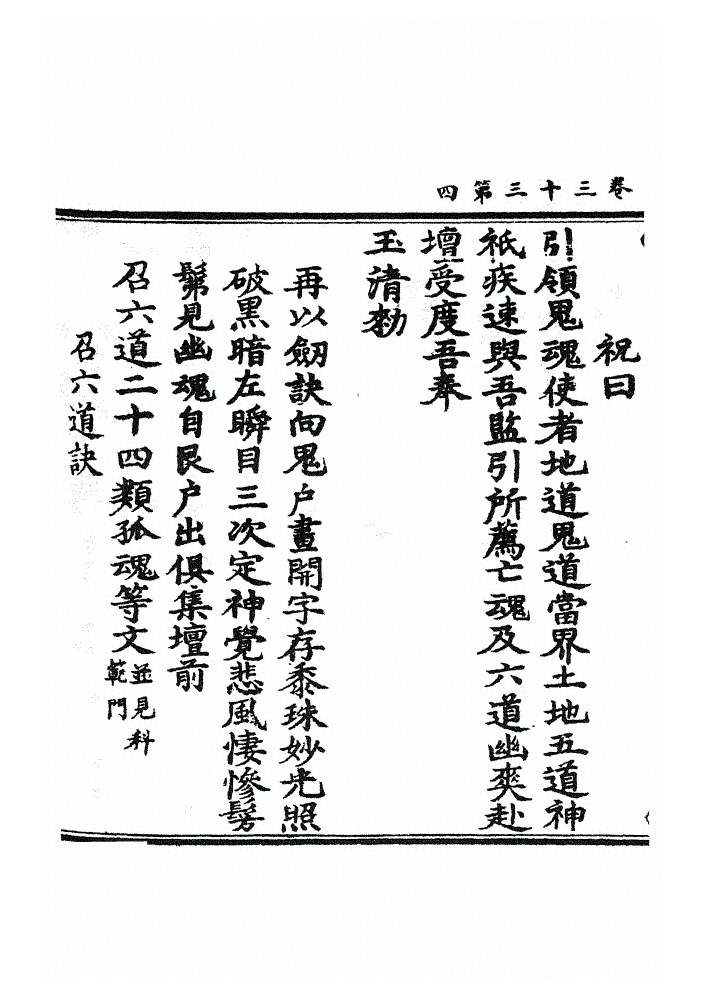 卷三十三第四
祝曰
引領鬼魂使者地道鬼道當界土地五道神
祇疾速與吾監引所薦亡魂及六道幽爽赴
壇受度吾奉
玉清勑
再以劒訣向鬼户畫開字存黍珠妙光照
破黑暗左瞬目三次定神覺悲風悽慘髣
髴見幽魂自艮户出俱集壇前
召六道二十四類孤魂等文並見科
範門
召六道訣